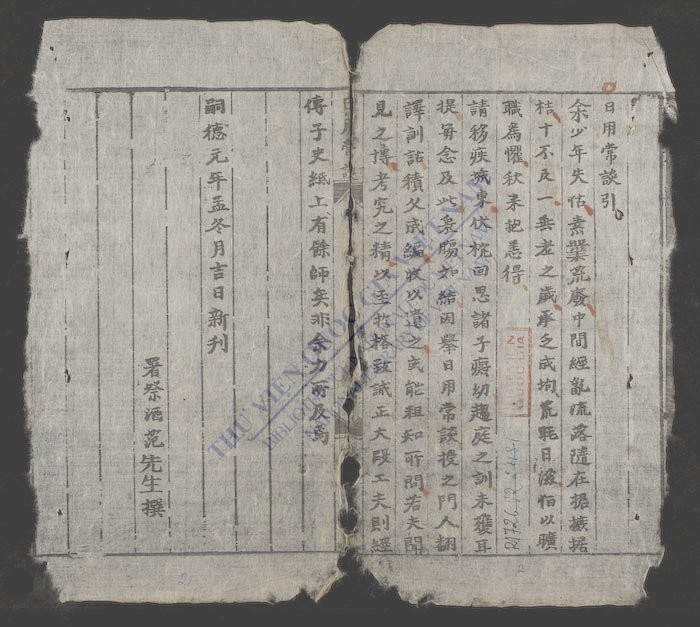 日用常談引
余少年失怙素業荒廢中間經亂流落隨在捃摭据
拮十不及一垂老之歲承乏成均荒耗日滋怕以曠
職為懼秋来抱恙得
請移疾城東伏枕回思諸子癡幼趨庭之訓未獲耳
提毎念及此衷腸如結因舉日用常談授之門人翻
譯訓詁積久成編收以遺之或能粗知所問若夫聞
見之博考究之精以至於格致誠正大段工夫則經
傳子史紙上有餘師矣非余力所及焉
嗣德元年孟冬月吉日新刊
署祭酒范先生撰
THƯ VIỆN QUỐC GIA VIỆT NAM